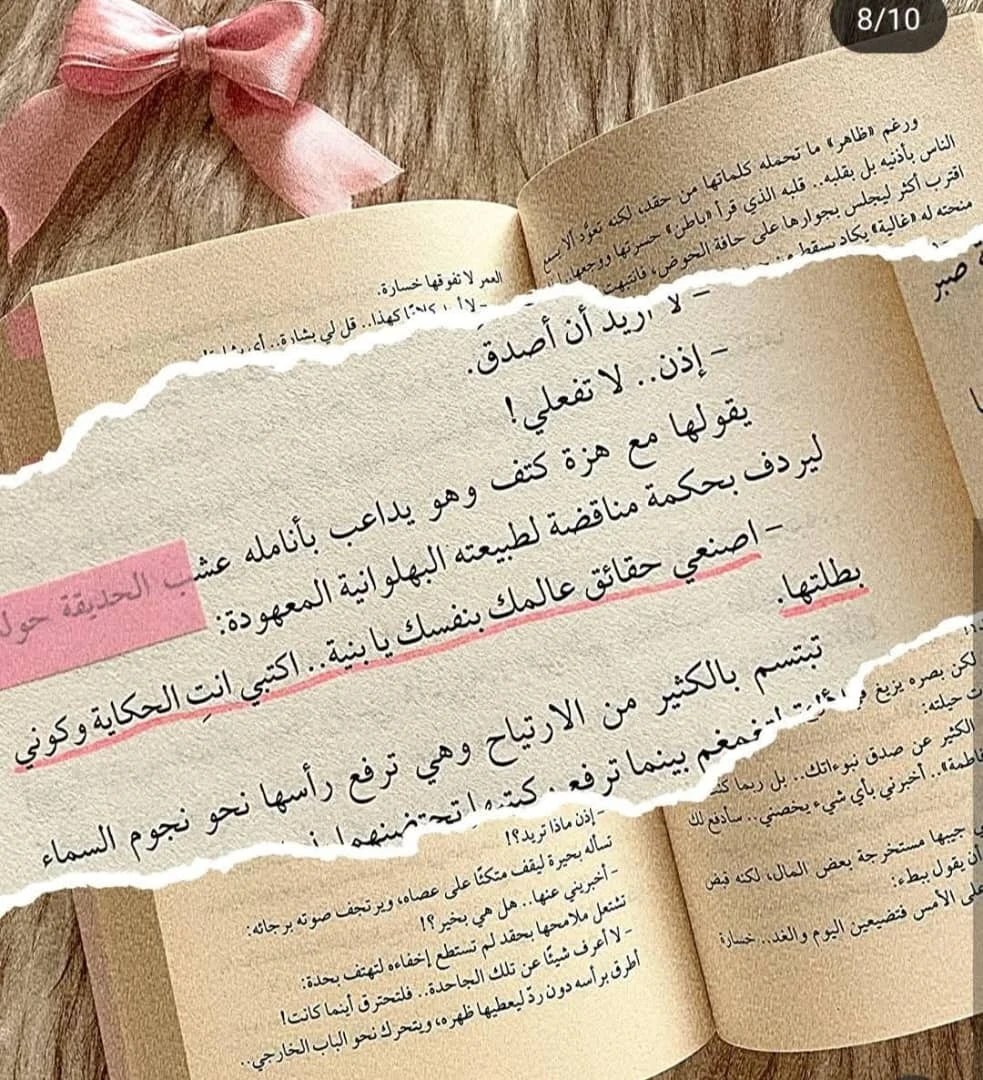 8/10
ورغم «ظاهر» ما تحمله كلماتها من حقد، لكنه تعوّد ألا يسمع
الناس بأذنيه بل بقلبه.. قلبه الذي قرأ «باطن» حسرتها ووجعها
اقترب أكثر ليجلس بجوارها على حافة الحوض، فانتبهت
منحته له «غالية» يكاد يسقط من
العمر لا تفوقها خسارة.
كهذا.. قل لي بشارة.. أي
صبر
- لا أريد أن أصدق.
- إذن.. لا تفعلي!
يقولها مع هزة كتف وهو يداعب بأنامله عشب الحديقة حول
ليردف بحكمة مناقضة لطبيعته البهلوانية المعهودة:
- اصنعي حقائق عالمك بنفسك يا بنية.. اكتبي انتِ الحكاية وكوني
بطلتها.
تبتسم بالكثير من الارتياح وهي ترفع رأسها نحو نجوم السماء
بينما ترفع
لكن بصره يزيغ
ت حيلته:
الكثير عن صدق نبوءاتك.. بل ربما
فاطمة».. أخبرني بأي شيء يخصني.. سأدفع لك
جيبها مستخرجة بعض المال، لكنه قبض
أن يقول ببطء:
على الأمس فتضيعين اليوم والغد.. خسارة
- إذن ماذا تريد؟!
تسأله بحيرة ليقف متكئًا على عصاه، ويرتجف صوته برجائه:
- أخبريني عنها.. هل هي بخير؟!
تشتعل ملامحها بحقد لم تستطع إخفاءه لتهتف بحدة:
- لا أعرف شيئًا عن تلك الجاحدة.. فلتحترق أينما كانت!
أطرق برأسه دون ردّ ليعطيها ظهره، ويتحرك نحو الباب الخارجي..